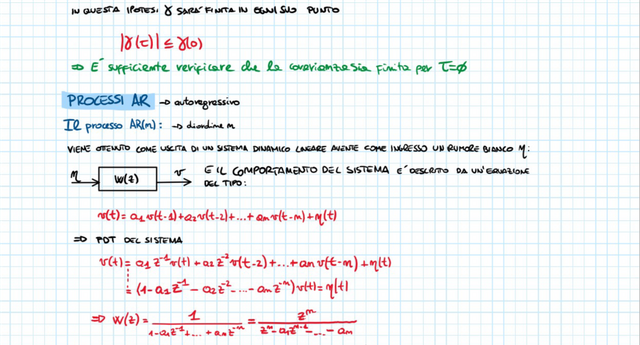 IN QUESTA IPOTESI γ SARÀ FINITA IN OGNI SUO PUNTO
|γ(τ)| ≤ γ(0)
⇒ E' sufficiente verificare che la covarianza sia finita per τ=∅
PROCESSI AR → autoregressivo
Il processo AR(m): → di ordine m
VIENE OTTENUTO COME USCITA DI UN SISTEMA DINAMICO LINEARE AVENTE COME INGRESSO UN RUMORE BIANCO η:
η → W(z) → v E IL COMPORTAMENTO DEL SISTEMA E' DESCRITTO DA UN'EQUAZIONE
DEL TIPO:
v(t)= a₁ v(t-1)+a₂ v(t-2)+...+an v(t-m)+η(t)
⇒ FDT DEL SISTEMA
v(t)= a₁ z⁻¹ v(t)+ a₂ z⁻² v(t-2)+...+an v(t-m)+η(t)
= (1-a₁z⁻¹ - a₂z⁻² - ... - an z⁻ᵐ) v(t)= η(t)
⇒ W(z)= 1 / (1-a₁z⁻¹+...+an z⁻ᵐ) = zᵐ / (zᵐ-a₁zᵐ⁻¹-...-an)